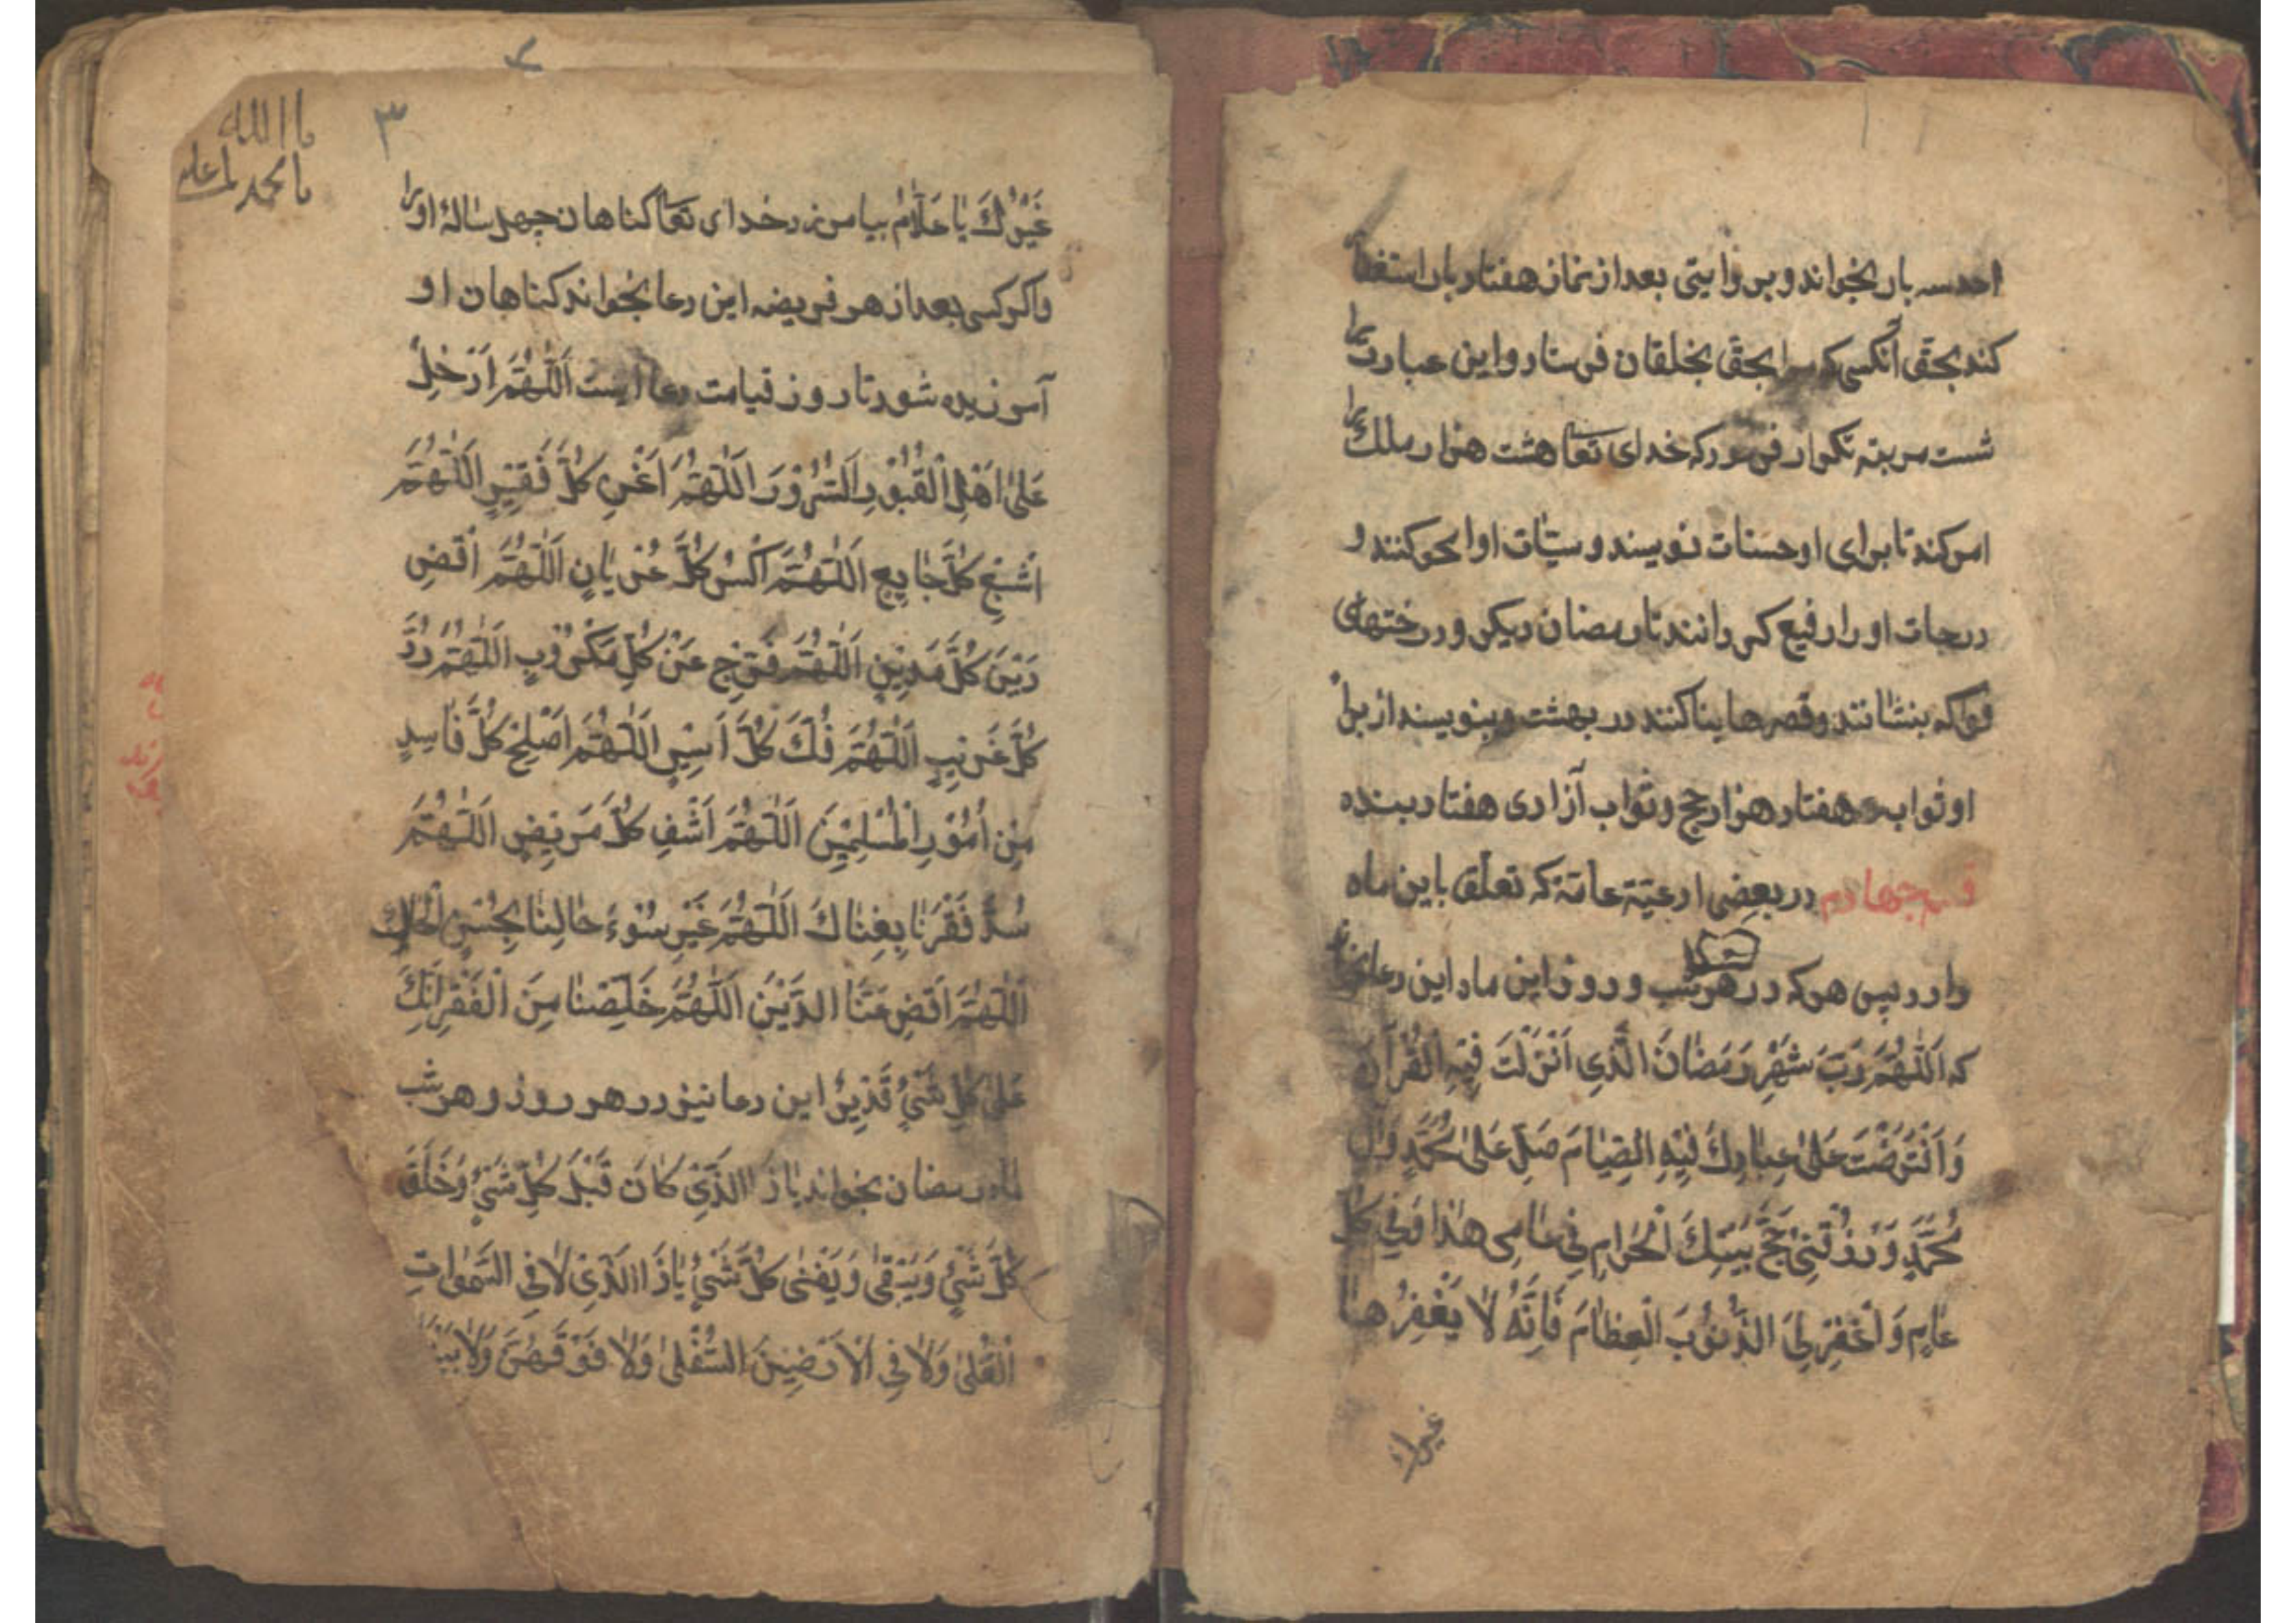 احد سه بار بخواند و بروایتی بعد از نماز هفتاد بار استغفا
کند بحقی آنکسی که مرا بحقی بخلقان فرستاد و این عبارت را
شست مرتبه تکرار فرمود که خدای تعا هشت هزار ملک را
امر کند تا برای او حسنات نویسند و سیّئات او امحو کنند و
درجات او را رفیع کردانند تا رمضان دیکر و درختهای
فواکه بنشانند و قصرها بنا کنند در بهشت و بنویسند از برا
او ثواب هفتاد هزار حج و ثواب آزادی هفتاد بنده
قسم چهارم در بعضی ادعیّهٔ عامّه که تعلّق باین ماه
دارد پس هر که در هر شب و روز این ماه این دعا
که اَللّٰهُمَّ رَبَّ شَهْرِ رَمَضٰانَ الَّذِی اَنْزَلْتَ فِیْهِ الْقُرْآنَ
وَ اَفْتَرَضْتَ عَلیٰ عِبٰادِكَ فِیْهِ الصِّیٰامَ صَلِّ عَلیٰ مُحَمَّدٍ وَ اٰلِ
مُحَمَّدٍ وَ رْزُقْنِی حَجَّ بَیْتِكَ الْحَرٰامِ فِی عٰامِی هٰذٰا وَ فِی كُلِّ
عٰامٍ وَ اغْفِرْ لِیَ الذُّنُوْبَ الْعِظٰامَ فَاِنَّهُ لٰا یَغْفِرُهٰا
غیرك
یا الله
یا محمد یا علی
۳
غَیْرُكَ یٰا عَلّٰامُ بیامرزد خدای تعا کناهان چهل سالهٔ او را
و اکر کسی بعد از هر فریضه این دعا بخواند کناهان او
آمرزیده شود تا روز قیامت دعا اینست اَللّٰهُمَّ اَدْخِلْ
عَلیٰ اَهْلِ الْقُبُوْرِ السُّرُوْرَ اَللّٰهُمَّ اَغْنِ كُلَّ فَقِیْرٍ اَللّٰهُمَّ
اَشْبِعْ كُلَّ جٰایِعٍ اَللّٰهُمَّ اَكْسُ كُلَّ عُرْیٰانٍ اَللّٰهُمَّ اَقْضِ
دَیْنَ كُلِّ مَدِیْنٍ اَللّٰهُمَّ فَرِّجْ عَنْ كُلِّ مَكْرُوْبٍ اَللّٰهُمَّ رُدَّ
كُلَّ غَرِیْبٍ اَللّٰهُمَّ فُكَّ كُلَّ اَسِیْرٍ اَللّٰهُمَّ اَصْلِحْ كُلَّ فٰاسِدٍ
مِنْ اُمُوْرِ الْمُسْلِمِیْنَ اَللّٰهُمَّ اَشْفِ كُلَّ مَرِیْضٍ اَللّٰهُمَّ
سُدَّ فَقْرَنٰا بِغِنٰاكَ اَللّٰهُمَّ غَیِّرْ سُوْءَ حٰالِنٰا بِحُسْنِ حٰالِكَ
اَللّٰهُمَّ اَقْضِ عَنَّا الدَّیْنَ اَللّٰهُمَّ خَلِّصْنٰا مِنَ الْفَقْرِ اِنَّكَ
عَلیٰ كُلِّ شَیْءٍ قَدِیْرٌ این دعا نیز در هر روز و هر شب
ماه رمضان بخواند یٰا ذَا الَّذِیْ كٰانَ قَبْلَ كُلِّ شَیْءٍ وَ خَلَقَ
كُلَّ شَیْءٍ وَ یَبْقیٰ وَ یَفْنیٰ كُلُّ شَیْءٍ یٰا ذَا الَّذِیْ لٰا فِی السَّمٰوٰاتِ
الْعُلیٰ وَلٰا فِی الْاَرَضِیْنَ السُّفْلیٰ وَلٰا فَوْقَهُنَّ وَلٰا